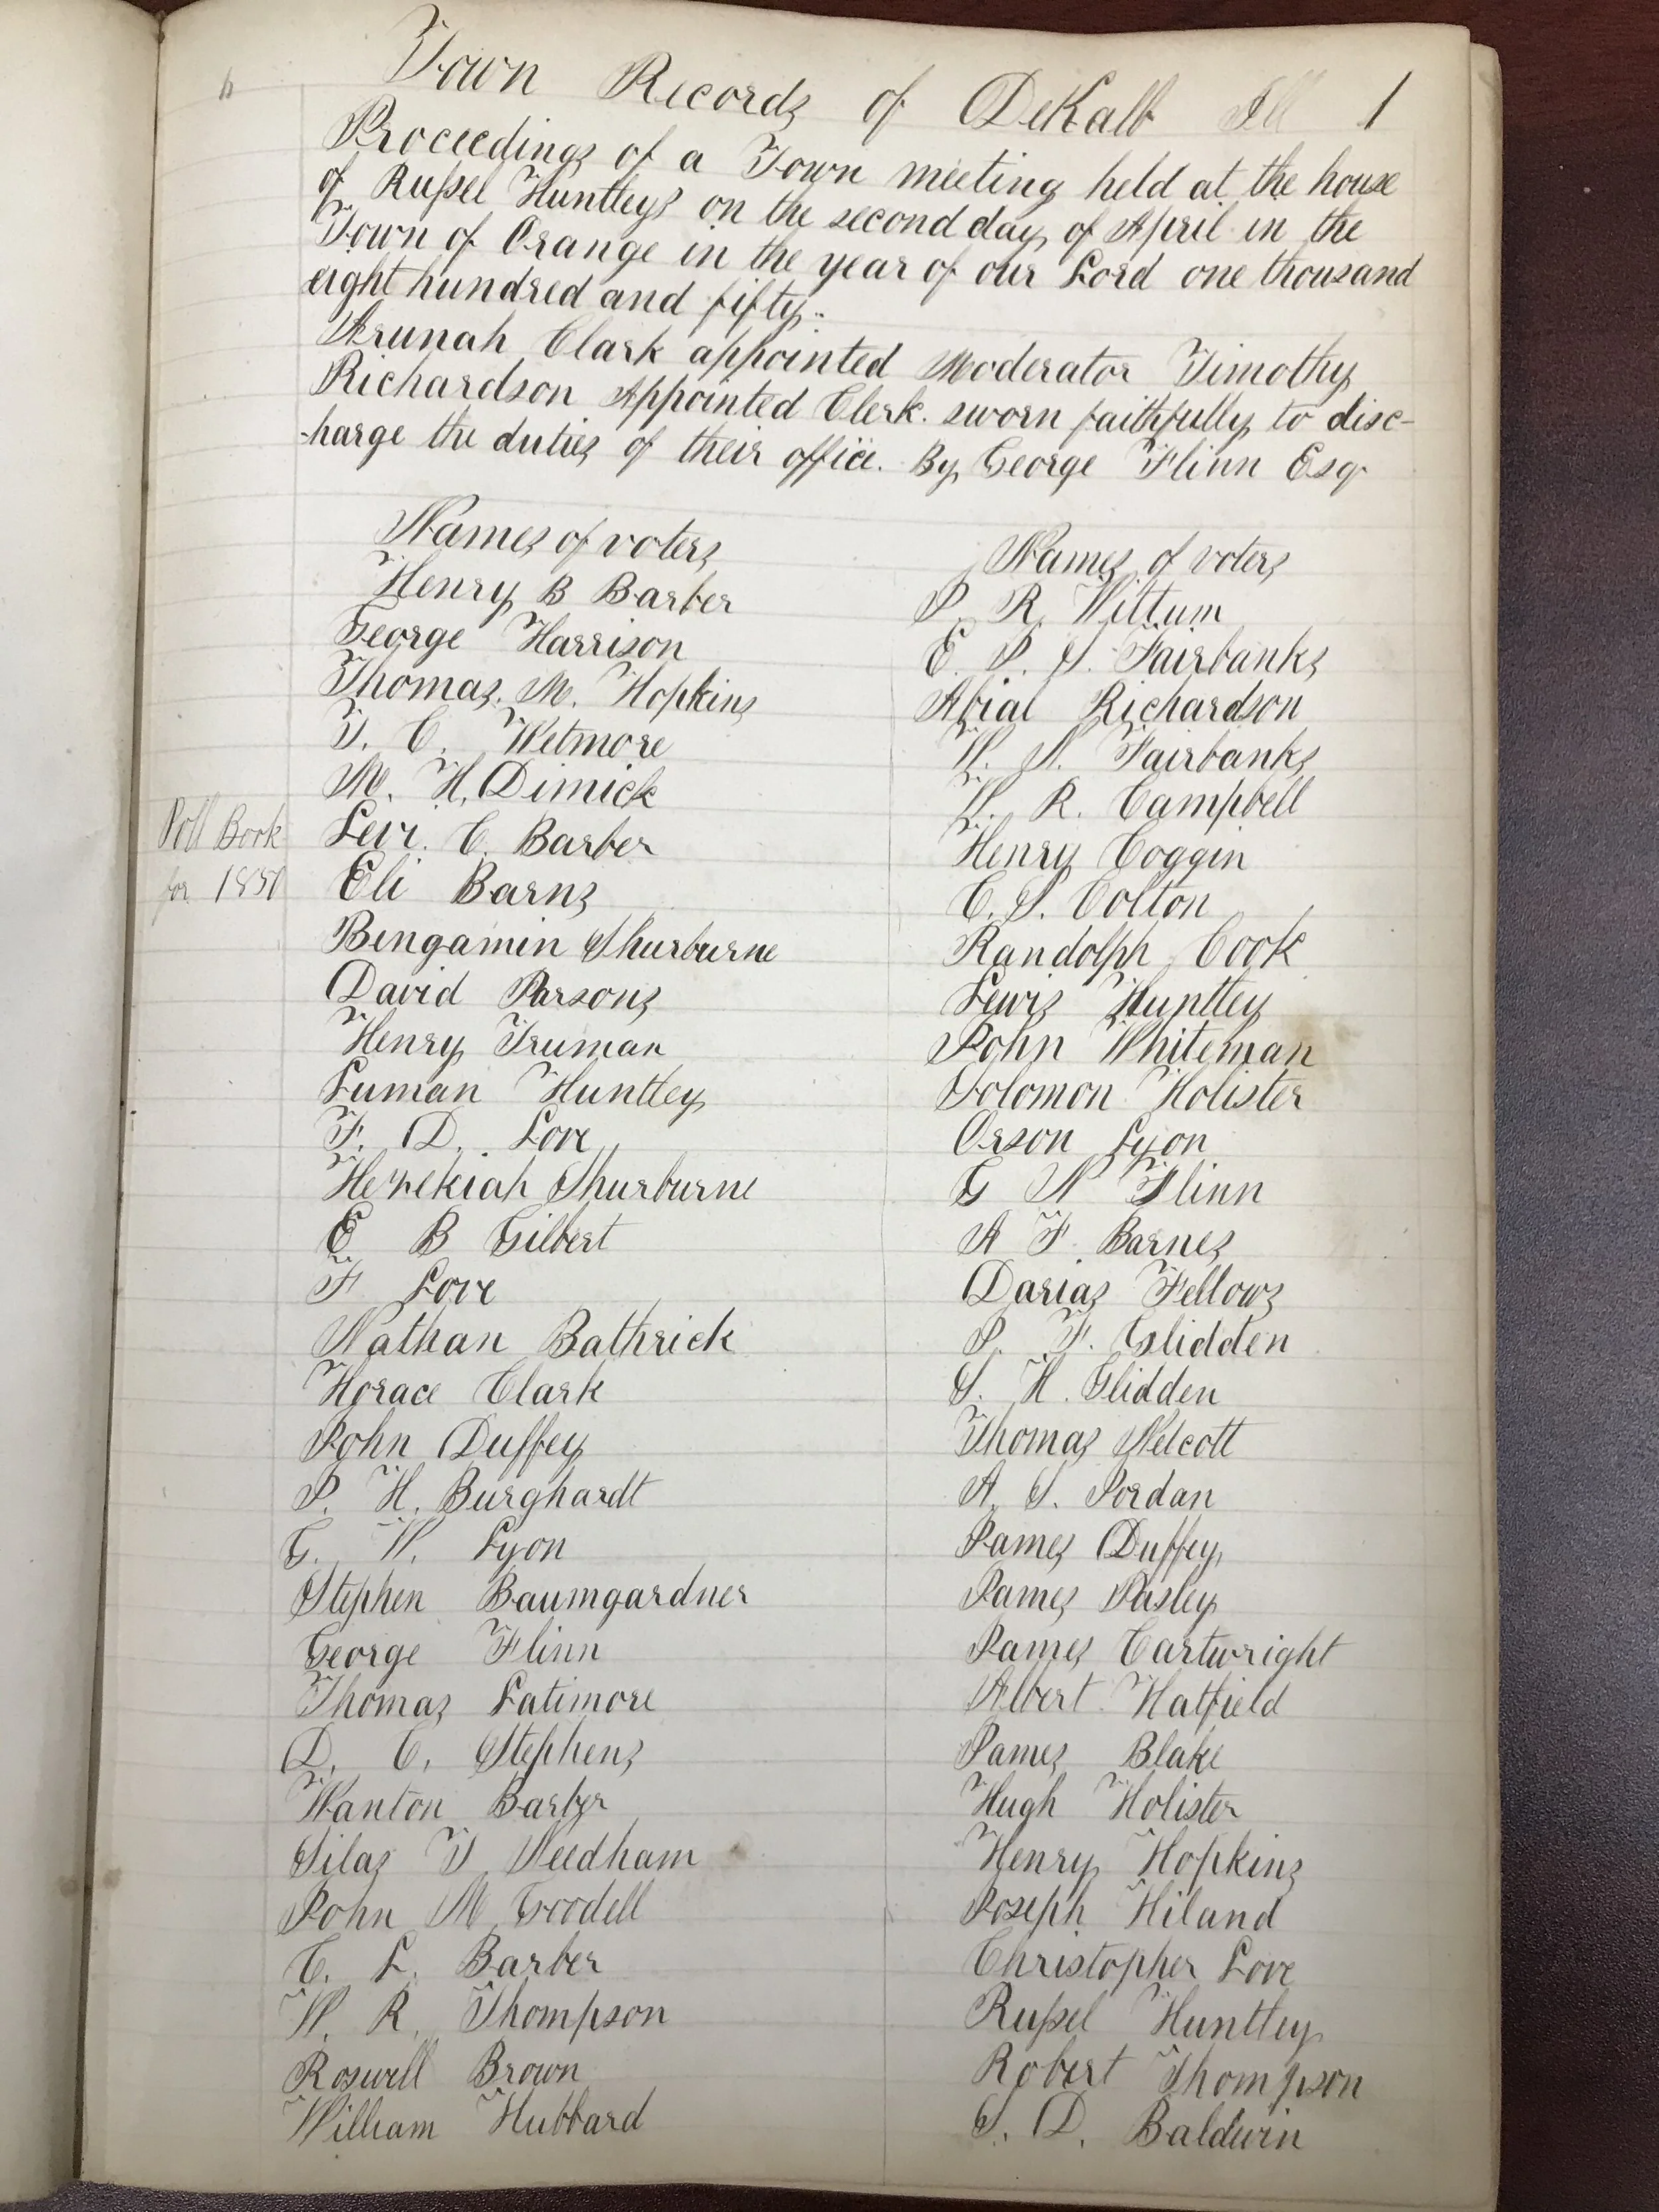 Town Records of DeKalb Ill 1
Proceedings of a Town meeting held at the house
of Rußel Huntleys on the second day of April in the
Town of Orange in the year of our Lord one thousand
eight hundred and fifty..
Arunah Clark appointed Moderator Timothy
Richardson Appointed Clerk. sworn faithfully to disc-
-harge the duties of their office. By George Flinn Esq
Names of voters
Henry B Barber
George Harrison
Thomas. M. Hopkins
T. C. Wetmore
M. H. Dimick
Poll Book
for 1850
Levi. C. Barber
Eli Barns
Bengamin Shurburne
David Parsons
Henry Truman
Luman Huntley
F. D. Love
Hezekiah Shurburne
E B Gilbert
F Love
Nathan Bathrick
Horace Clark
John Duffey
P. H. Burghardt
G. W. Lyon
Stephen Baumgardner
George Flinn
Thomas Latimore
D. C. Stephens
Wanton Barber
Silas T Needham
John M Goodell
C. L. Barber
W. R. Thompson
Roswell Brown
William Hubbard
Names of voters
P. R. Wittum
E. P. S. Fairbanks
Abial Richardson
W. N. Fairbanks
W. R. Campbell
Henry Coggin
C. S. Colton
Randolph Cook
Lewis Huntley
John Whiteman
Solomon Holister
Orson Lyon
G N Flinn
A F. Barnes
Darias Fellows
P. F. Glidden
S. H. Glidden
Thomas Welcott
A. S. Jordan
James Duffey
James Pasley
James Cartwright
Albert Hatfield
James Blake
Hugh Holister
Henry Hopkins
Joseph Hiland
Christopher Love
Rußel Huntley
Robert Thompson
S. D. Baldwin